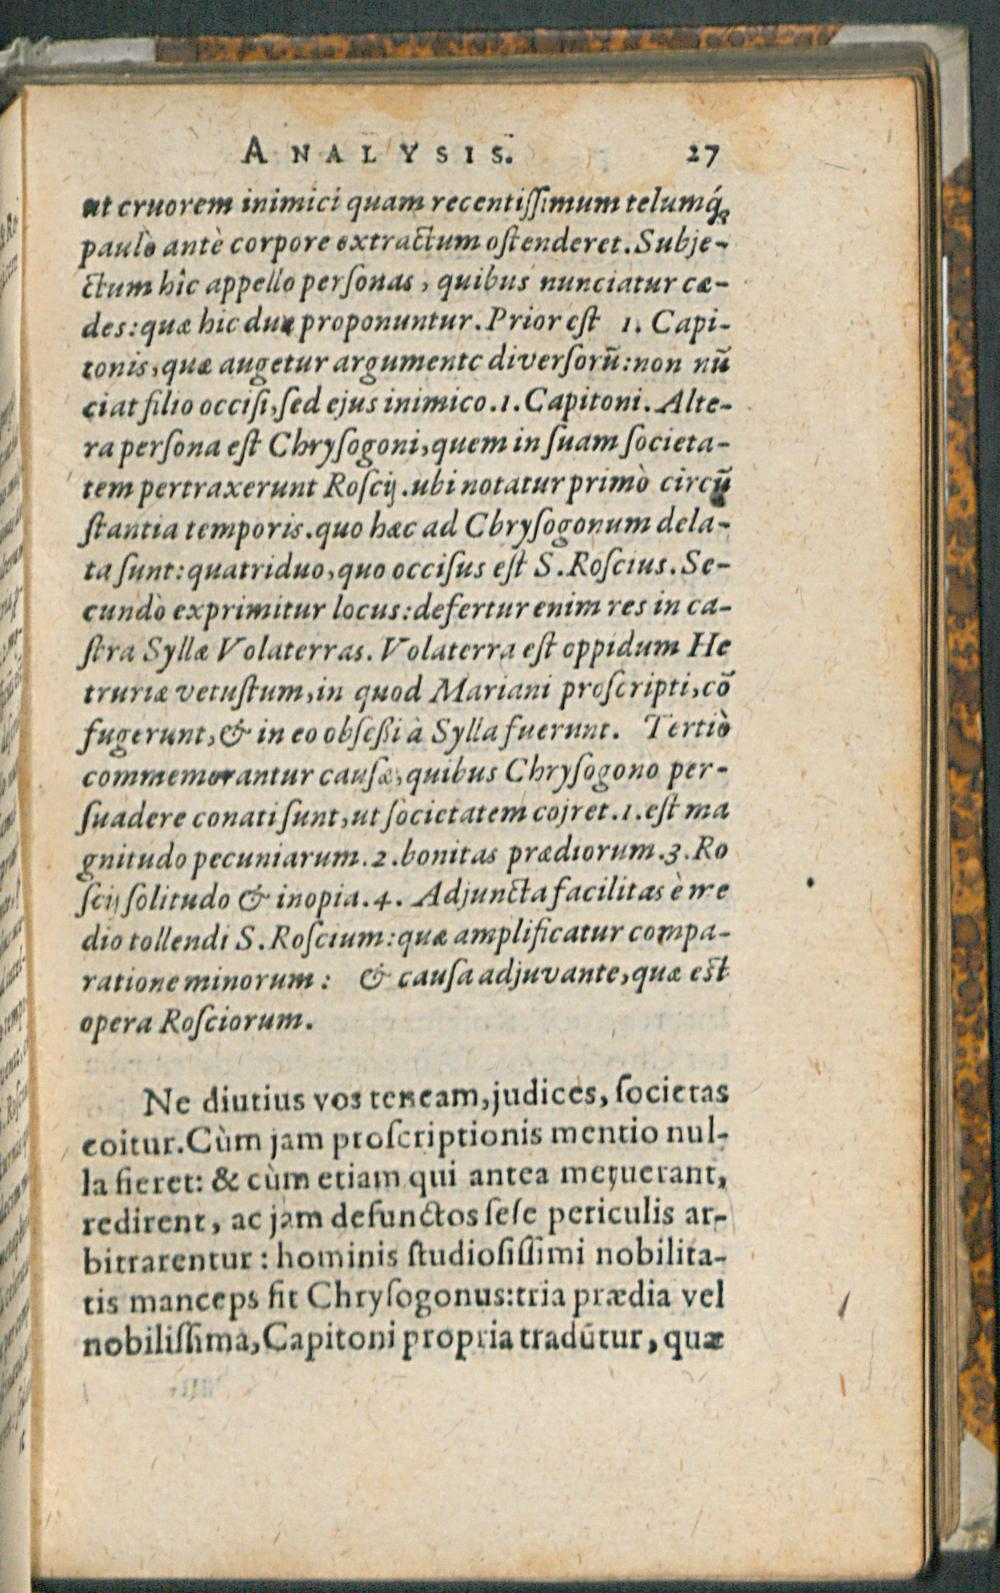 ANALYSIS. 27
ut cruorem inimici quam recentissimum telumq́;
paulò antè corpore extractum ostenderet. Subje-
ctum hîc appello personas, quibus nunciatur cæ-
des: quæ hic duæ proponuntur. Prior est 1. Capi-
tonis, quæ augetur argumentc diversorũ: non nũ
ciat filio occisi, sed ejus inimico. 1. Capitoni. Alte-
ra persona est Chrysogoni, quem in suam societa-
tem pertraxerunt Roscij. ubi notatur primò circũ
stantia temporis. quo hæc ad Chrysogonum dela-
ta sunt: quatriduo, quo occisus est S. Roscius. Se-
cundò exprimitur locus: defertur enim res in ca-
stra Syllæ Volaterras. Volaterra est oppidum He
truriæ vetustum, in quod Mariani proscripti, cõ
fugerunt, & in eo obsessi à Sylla fuerunt. Tertiò
commemorantur causæ, quibus Chrysogono per-
suadere conati sunt, ut societatem cojret. 1. est ma
gnitudo pecuniarum. 2. bonitas prædiorum. 3. Ro
scij solitudo & inopia. 4. Adjuncta facilitas è me
dio tollendi S. Roscium: quæ amplificatur compa-
ratione minorum: & causa adjuvante, quæ est
opera Rosciorum.
Ne diutius vos teneam, judices, societas
coitur. Cùm jam proscriptionis mentio nul-
la fieret: & cùm etiam qui antea metuerant,
redirent, ac jam defunctos sese periculis ar-
bitrarentur: hominis studiosissimi nobilita-
tis manceps fit Chrysogonus: tria prædia vel
nobilissima, Capitoni propria tradũtur, quæ